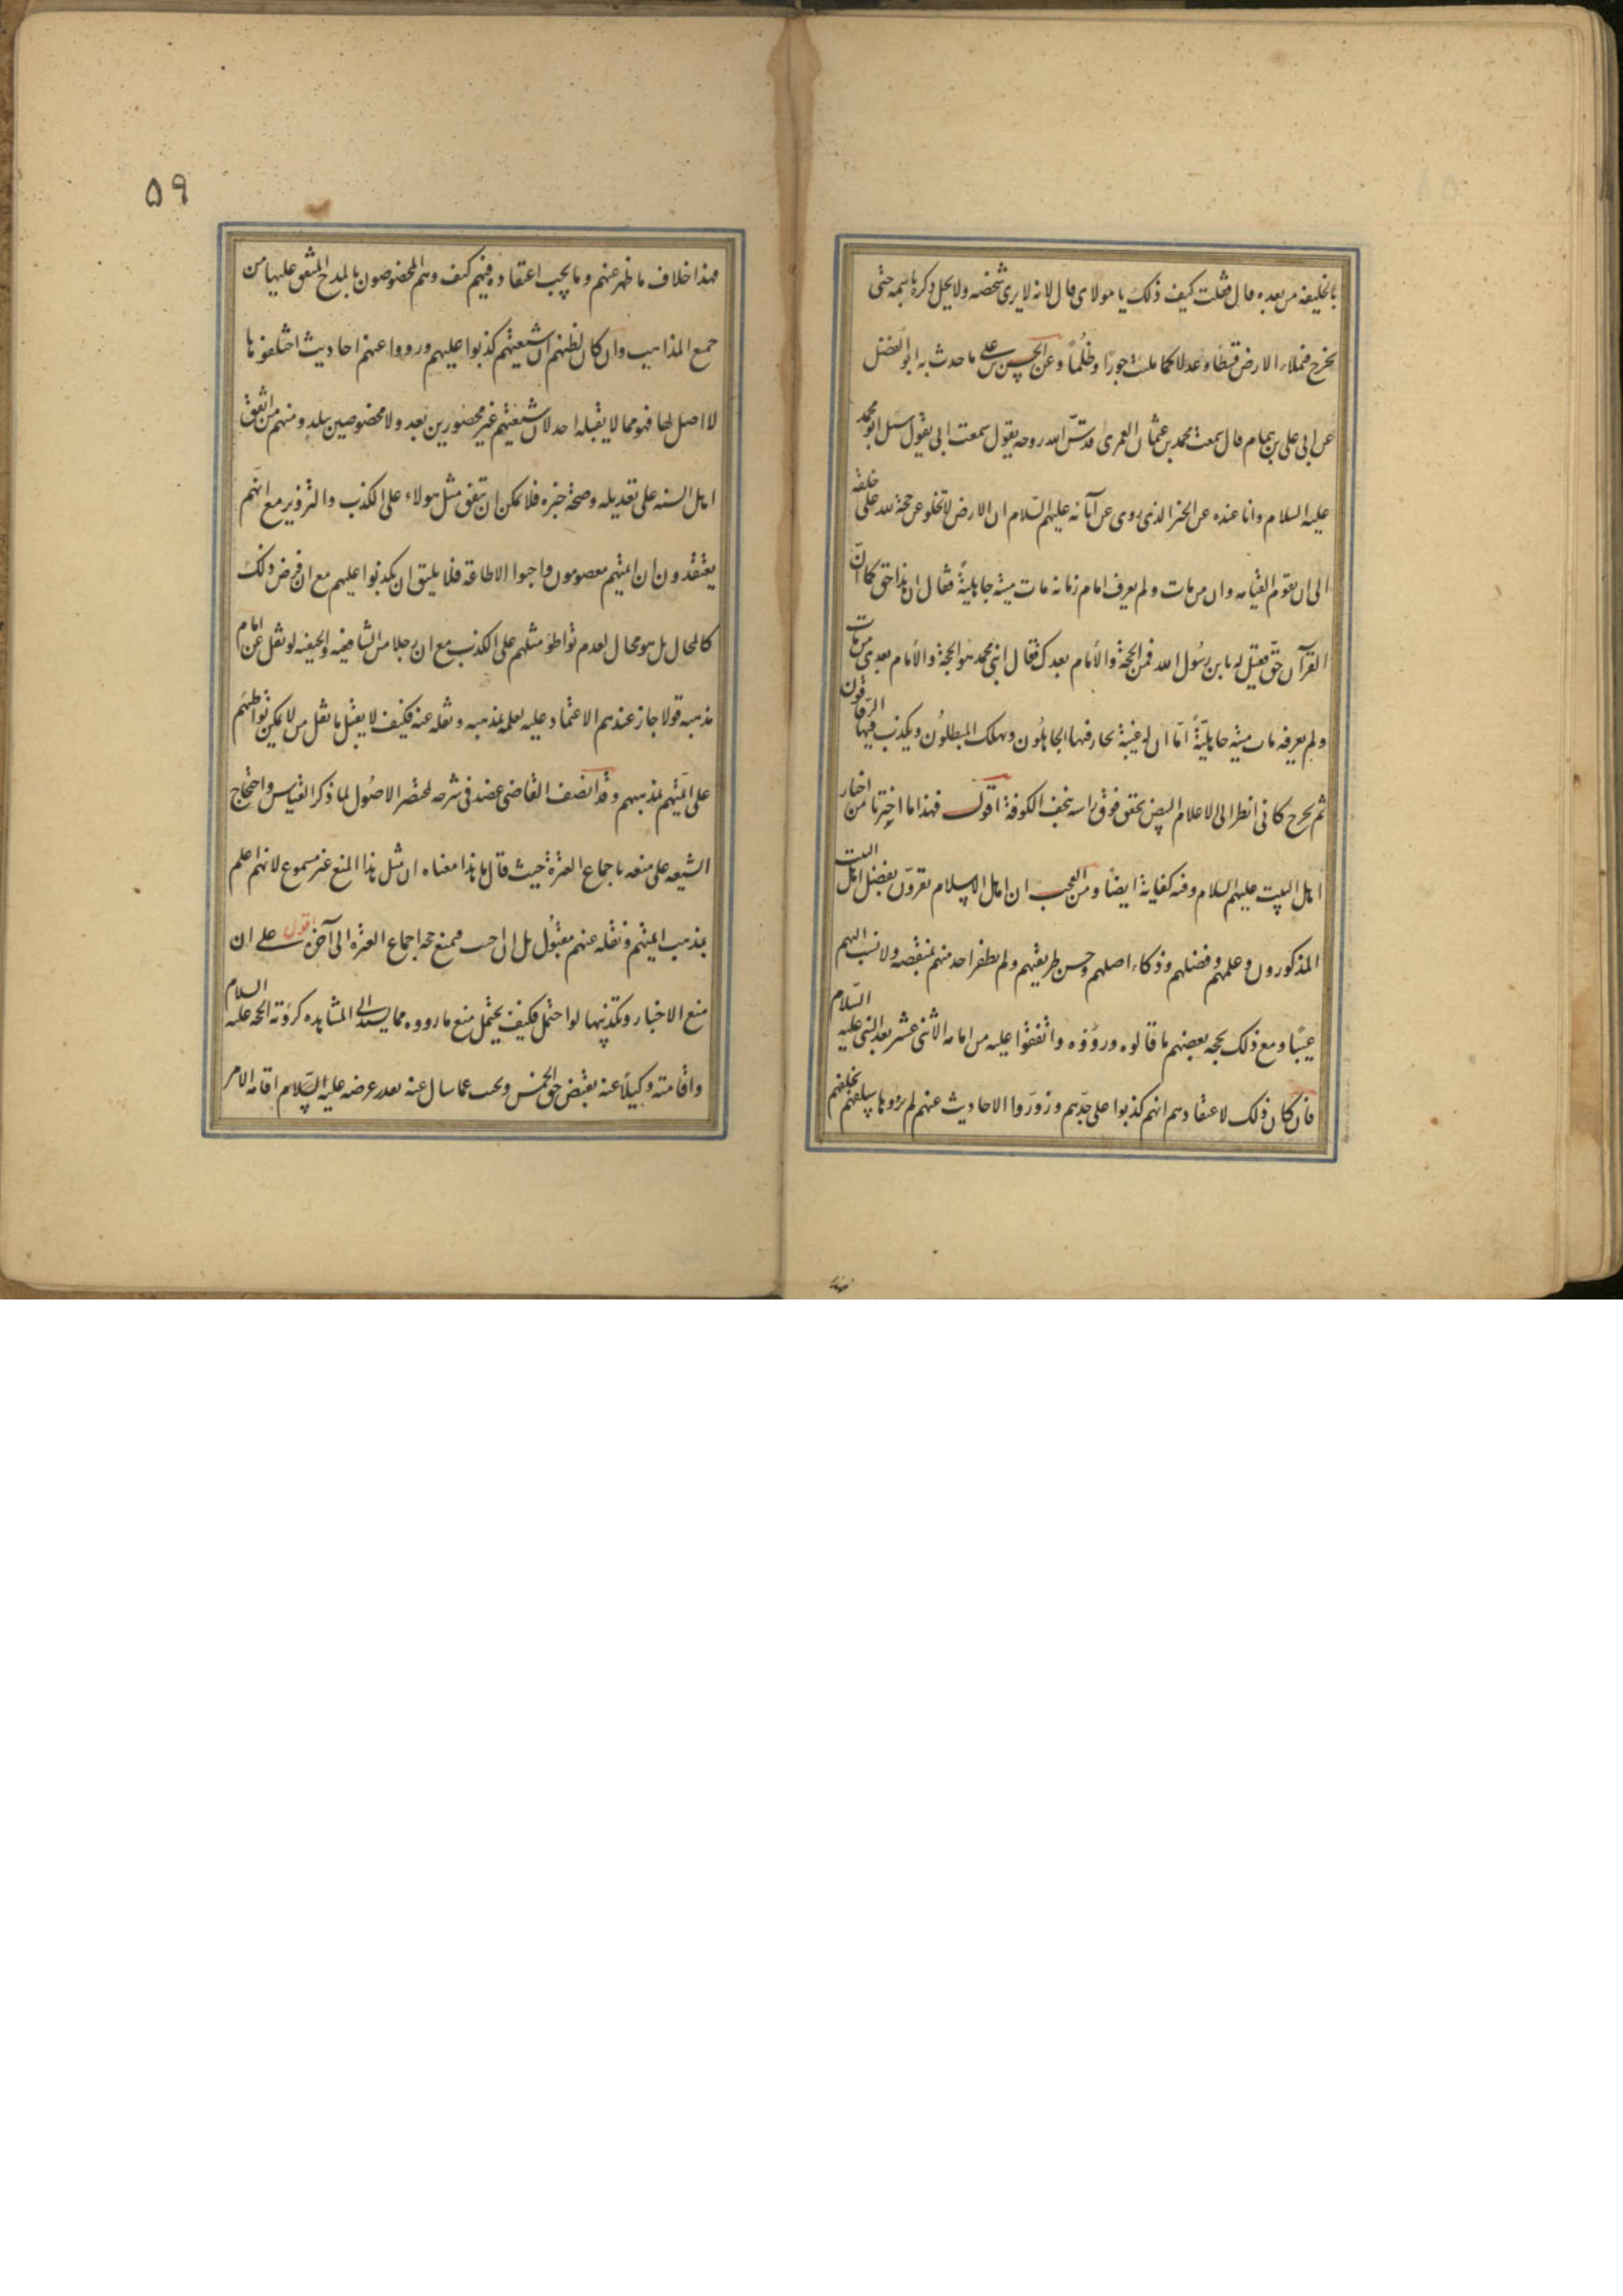 بالخليفه من بعده قال فقلت كيف ذلك يا مولاى قال لانه لا يرى شخصه ولا يحل ذكره باسمه حتى
يخرج فيملاء الارض قسطا وعدلا كما ملئت جورا وظلما وعن الحسن بن على ما حدث به ابو الفضل
عن ابى على بن همام قال سمعت محمد بن عثمان العمرى قدس الله روحه يقول سمعت ابى يقول سئل ابو محمد
عليه السلام وانا عنده عن الخبر الذى روى عن آبائه عليهم السلام ان الارض لا تخلو عن حجة لله على خلقه
الى ان يقوم القيامه وان من مات ولم يعرف امام زمانه مات ميتة جاهلية فقال ان هذا حق كما ان
القرآن حق فقيل له يا بن رسول الله فمن الحجة والامام بعدك فقال ابنى محمد هو الحجة والامام بعدى من مات
ولم يعرفه مات ميتة جاهلية اما ان له غيبة يحار فيها الجاهلون ويهلك المبطلون ويكذب فيها الوقاتون
ثم يخرج كانى انظر الى الاعلام البيض يخفق فوق راسه بنجف الكوفة اقول فهذا ما اخبرنا من اخبار
اهل البيت عليهم السلام وفيه كفاية ايضا ومن العجب ان اهل الاسلام يقرون بفضل اهل البيت
المذكورون وعلمهم وفضلهم وذكاء اصلهم وحسن طريقتهم ولم يظفر احد منهم بمنقصة ولا نسب اليهم
عيبا ومع ذلك يجحد بعضهم ما قالوه ورووه واتفقوا عليه من امامه الاثنى عشر بعد النبى عليه السلام
فان كان ذلك لاعتقادهم انهم كذبوا على جدهم وزوروا الاحاديث عنهم لم يرووها سلفهم بخلفهم
۵۹
فهذا خلاف ما ظهر عنهم وما يجب اعتقاده فيهم كيف وهم المخصوصون بالمدح المتفق عليها من
جميع المذاهب وان كان لظنهم ان شيعتهم كذبوا عليهم ورووا عنهم احاديث اختلقوها
لا اصل لها فهو مما لا يقبله احد لان شيعتهم غير محصورين بعد ولا مخصوصين ببلد ومنهم من اتفق
اهل السنه على تعديله وصحة خبره فلا يمكن ان يتفق مثل هولاء على الكذب والتزوير مع انهم
يعتقدون ان ائمتهم معصومون واجبوا الاطاعة فلا يليق ان يكذبوا عليهم مع ان فرض ذلك
كالمحال بل هو محال لعدم تواطؤ مثلهم على الكذب مع ان رجلا من الشافعيه والحنفيه لو نقل عن امام
مذهبه قولا جاز عندهم الاعتماد عليه لعلمه بمذهبه ونقله عنه فكيف لا يقبل ما نقل من لا يمكن تواطئهم
على ائمتهم بمذهبهم وقد انصف القاضى عضد فى شرحه لمختصر الاصول لما ذكر القياس واحتجاج
الشيعه على منعه باجماع العترة حيث قال ما هذا معناه ان مثل هذا المنع غير مسموع لانهم اعلم
بمذهب ائمتهم ونقله عنهم مقبول بل الى فيمنع اجماع العترة الى آخره اقول على ان
منع الاخبار وتكذيبها لو احتمل فكيف يحتمل منع ما رووه مما يستند الى المشاهده كرؤية الحجه عليه السلام
واقامته وكيلا عنه بقبض حق الخمس ويجيب عما سال عنه بعد عرضه عليه السلام اقامة الامر